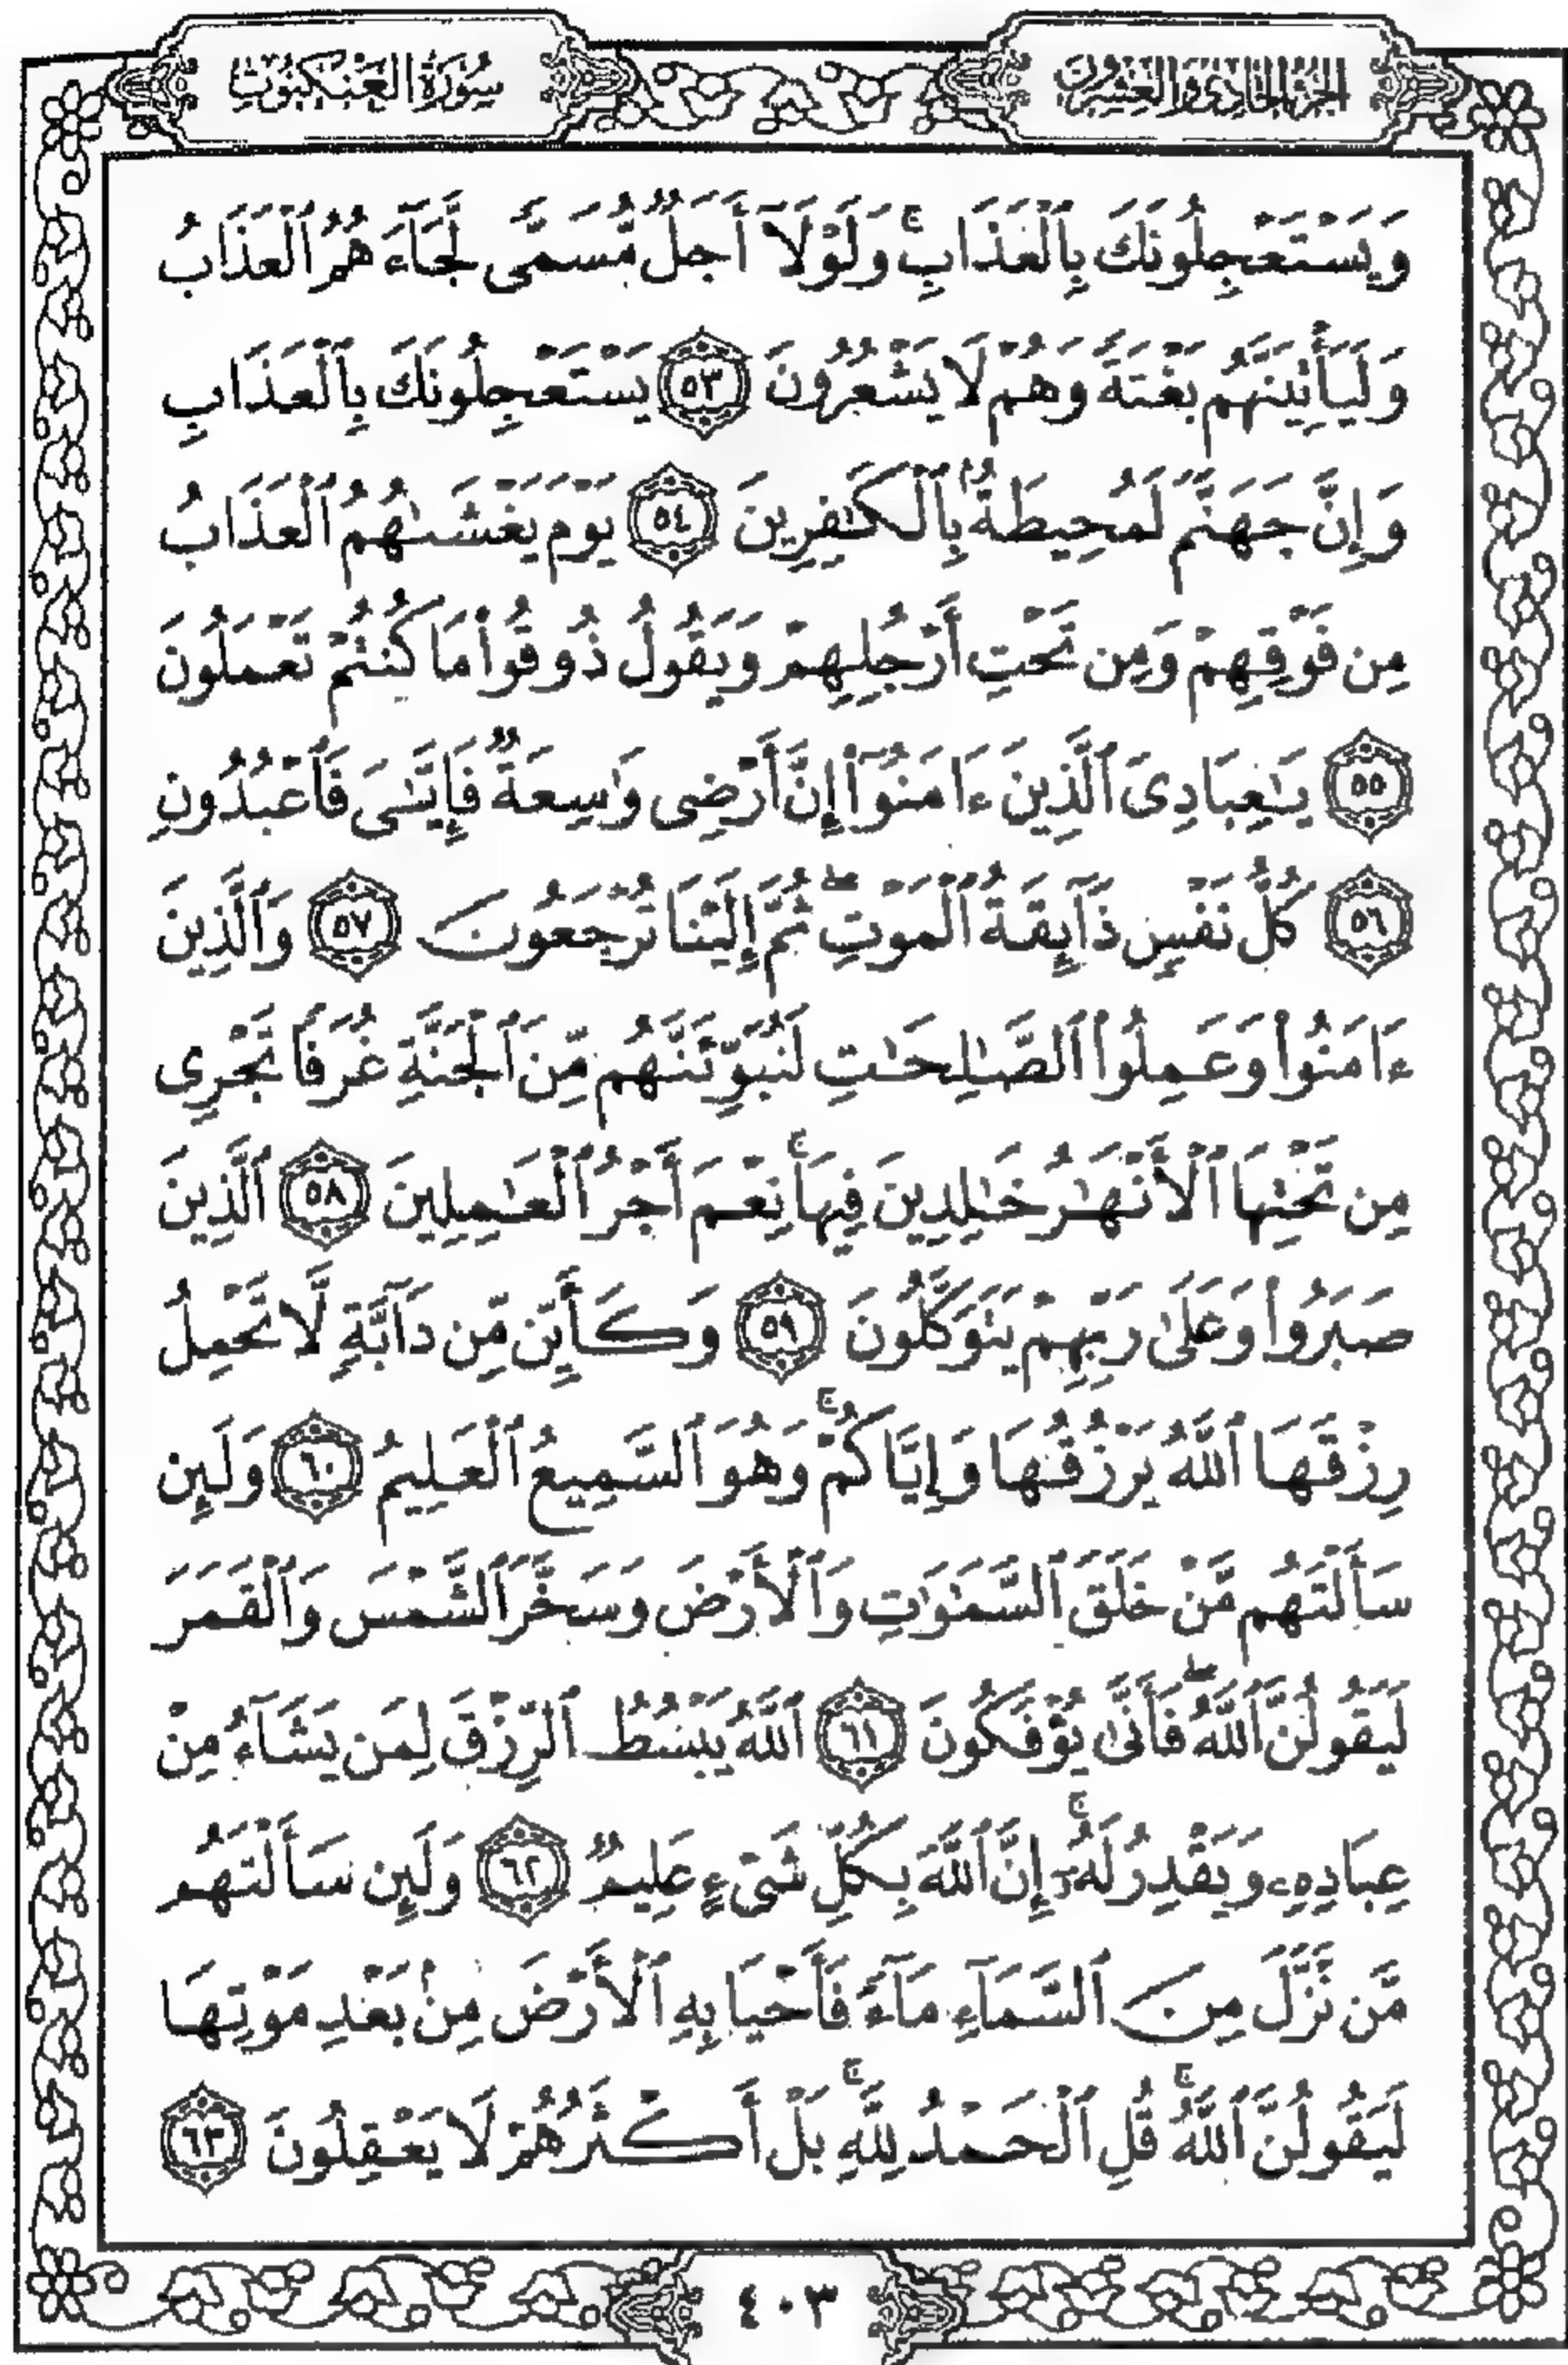 الجزء الحادي والعشرون
سورة العنكبوت
وَيَسْتَعْجِلُونَكَ بِٱلْعَذَابِ ۚ وَلَوْلَآ أَجَلٌ مُّسَمًّى لَّجَآءَهُمُ ٱلْعَذَابُ
وَلَيَأْتِيَنَّهُم بَغْتَةً وَهُمْ لَا يَشْعُرُونَ ٥٣ يَسْتَعْجِلُونَكَ بِٱلْعَذَابِ
وَإِنَّ جَهَنَّمَ لَمُحِيطَةٌۢ بِٱلْكَٰفِرِينَ ٥٤ يَوْمَ يَغْشَىٰهُمُ ٱلْعَذَابُ
مِن فَوْقِهِمْ وَمِن تَحْتِ أَرْجُلِهِمْ وَيَقُولُ ذُوقُوا۟ مَا كُنتُمْ تَعْمَلُونَ
٥٥ يَٰعِبَادِىَ ٱلَّذِينَ ءَامَنُوٓا۟ إِنَّ أَرْضِى وَٰسِعَةٌ فَإِيَّٰىَ فَٱعْبُدُونِ
٥٦ كُلُّ نَفْسٍ ذَآئِقَةُ ٱلْمَوْتِ ۖ ثُمَّ إِلَيْنَا تُرْجَعُونَ ٥٧ وَٱلَّذِينَ
ءَامَنُوا۟ وَعَمِلُوا۟ ٱلصَّٰلِحَٰتِ لَنُبَوِّئَنَّهُم مِّنَ ٱلْجَنَّةِ غُرَفًا تَجْرِى
مِن تَحْتِهَا ٱلْأَنْهَٰرُ خَٰلِدِينَ فِيهَا ۚ نِعْمَ أَجْرُ ٱلْعَٰمِلِينَ ٥٨ ٱلَّذِينَ
صَبَرُوا۟ وَعَلَىٰ رَبِّهِمْ يَتَوَكَّلُونَ ٥٩ وَكَأَيِّن مِّن دَآبَّةٍ لَّا تَحْمِلُ
رِزْقَهَا ٱللَّهُ يَرْزُقُهَا وَإِيَّاكُمْ ۚ وَهُوَ ٱلسَّمِيعُ ٱلْعَلِيمُ ٦٠ وَلَئِن
سَأَلْتَهُم مَّنْ خَلَقَ ٱلسَّمَٰوَٰتِ وَٱلْأَرْضَ وَسَخَّرَ ٱلشَّمْسَ وَٱلْقَمَرَ
لَيَقُولُنَّ ٱللَّهُ ۖ فَأَنَّىٰ يُؤْفَكُونَ ٦١ ٱللَّهُ يَبْسُطُ ٱلرِّزْقَ لِمَن يَشَآءُ مِنْ
عِبَادِهِۦ وَيَقْدِرُ لَهُۥٓ ۚ إِنَّ ٱللَّهَ بِكُلِّ شَىْءٍ عَلِيمٌ ٦٢ وَلَئِن سَأَلْتَهُم
مَّن نَّزَّلَ مِنَ ٱلسَّمَآءِ مَآءً فَأَحْيَا بِهِ ٱلْأَرْضَ مِنۢ بَعْدِ مَوْتِهَا
لَيَقُولُنَّ ٱللَّهُ ۚ قُلِ ٱلْحَمْدُ لِلَّهِ ۚ بَلْ أَكْثَرُهُمْ لَا يَعْقِلُونَ ٦٣
٤٠٣